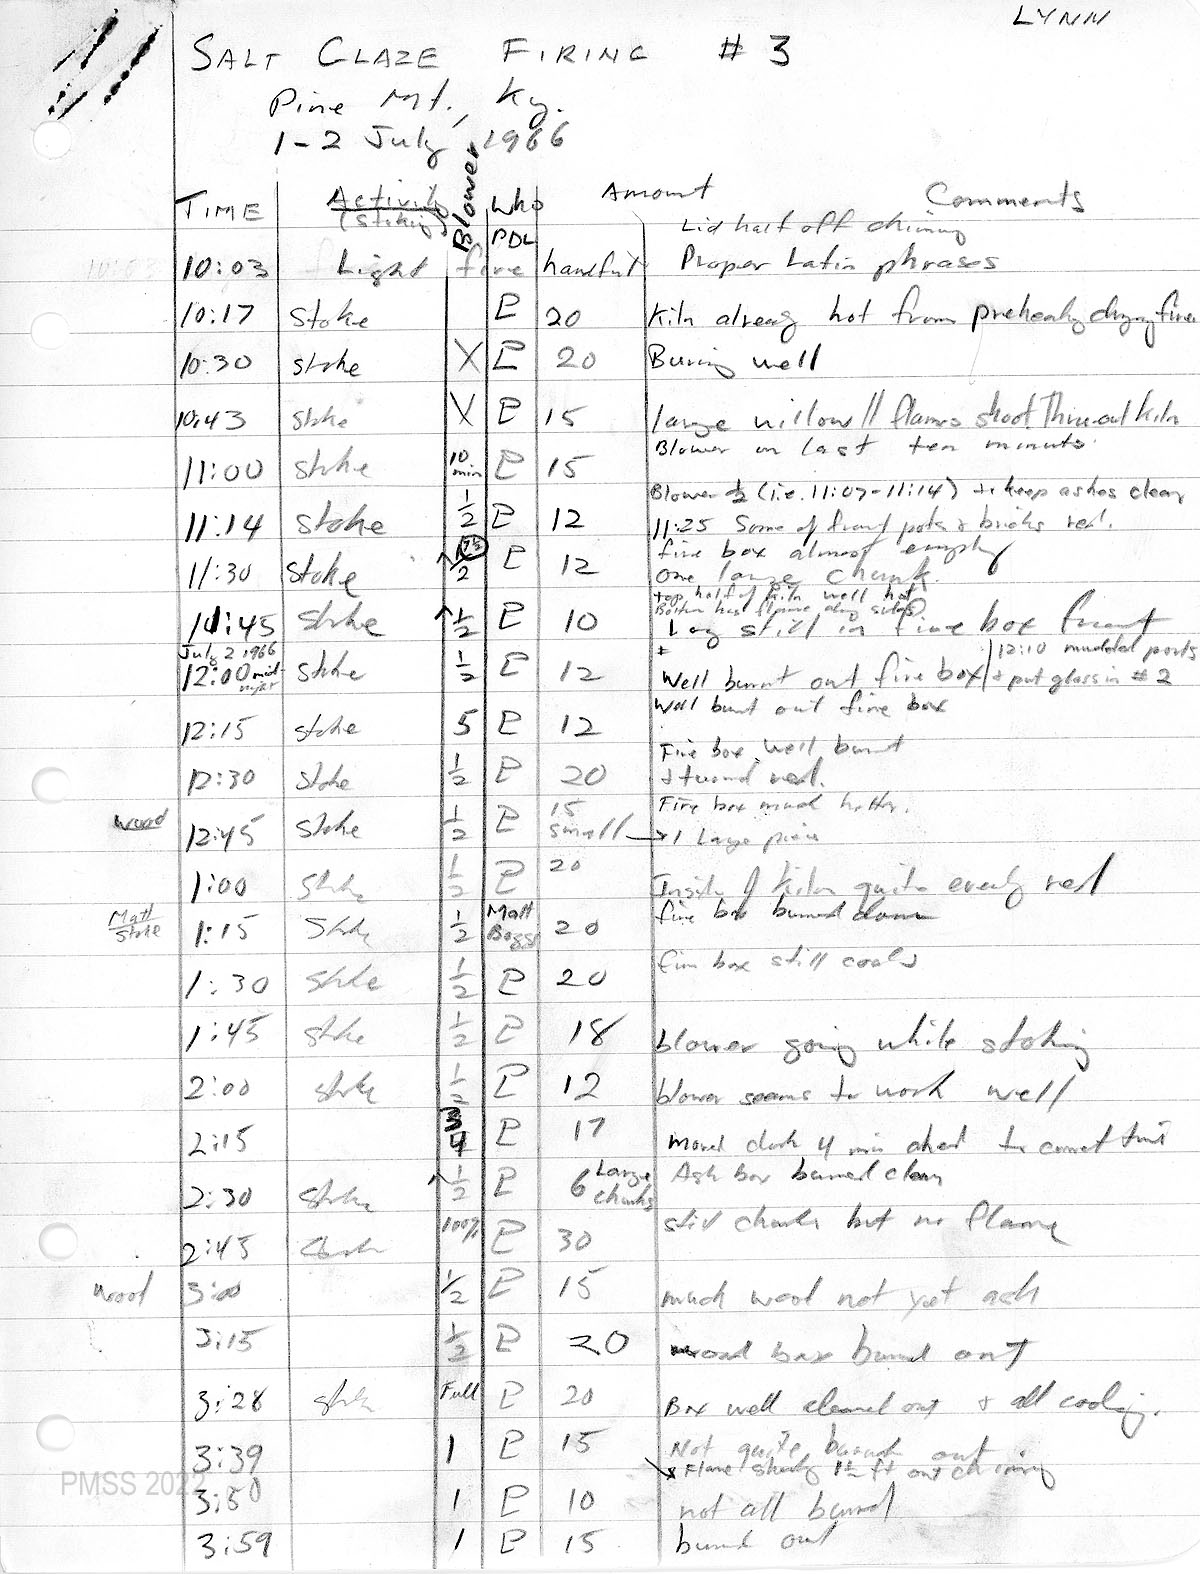 LYNN
SALT GLAZE FIRING #3
Pine Mt., Ky.
1-2 July 1966
TIME Activity (stoking) Blower Who Amount Comments
PDL Lid half off chimny
10:03 Light fire handful Proper Latin phrases
10:17 stoke P 20 Kiln already hot from preheaty drying fire
10:30 stoke X P 20 Burning well
10:43 stoke X P 15 large flames shoot Thru-out kiln
Blower on last ten minuts.
11:00 stoke 10 min P 15
Blower 1/2 (i.e. 11:07-11:14) to keep ashes clear
11:14 stoke 1/2 P 12 11:25 Some of front pots & bricks red.
fire box almost empty
11:30 stoke ↑ 1/2 P 12 one large chunk.
top half of kiln well hot
Bottom has flame along sides
11:45 stoke ↑ 1/2 P 10 Log still in fire box front
July 2 1966 12:10 mudded ports
12:00 midnight stoke 1/2 P 12 Well burnt out fire box & put glass in #2
Well burnt out fire box
12:15 stoke 5 P 12
Fire box well burnt
12:30 stoke 1/2 P 20 & turned red.
Fire box much hotter.
wood 12:45 stoke 1/2 P 15 small → 1 Large piece
1:00 stoke 1/2 P 20 Inside of kiln quite evenly red
Matt stoke 1:15 stoke 1/2 Matt Boggs 20 fire box burned down
fire box still coals
1:30 stoke 1/2 P 20
1:45 stoke 1/2 P 18 blower going while stoking
2:00 stoke 1/2 P 12 blower seems to work well
2:15 3/4 P 17 Moved clock 4 min ahead to correct time
2:30 stoke ↑ 1/2 P 6 Large chunks Ash box burned clean
still chunks but no flame
2:45 stoke 100% P 30
wood 3:00 1/2 P 15 much wood not yet ash
3:15 1/2 P 20 wood box burned out
3:28 stoke Full P 20 Box well cleaned out & all cooling.
3:39 1 P 15 Not quite burned out
Flame steady 1 1/2 ft out chimny
3:50 1 P 10 not all burned
3:59 1 P 15 burned out
PMSS 2022